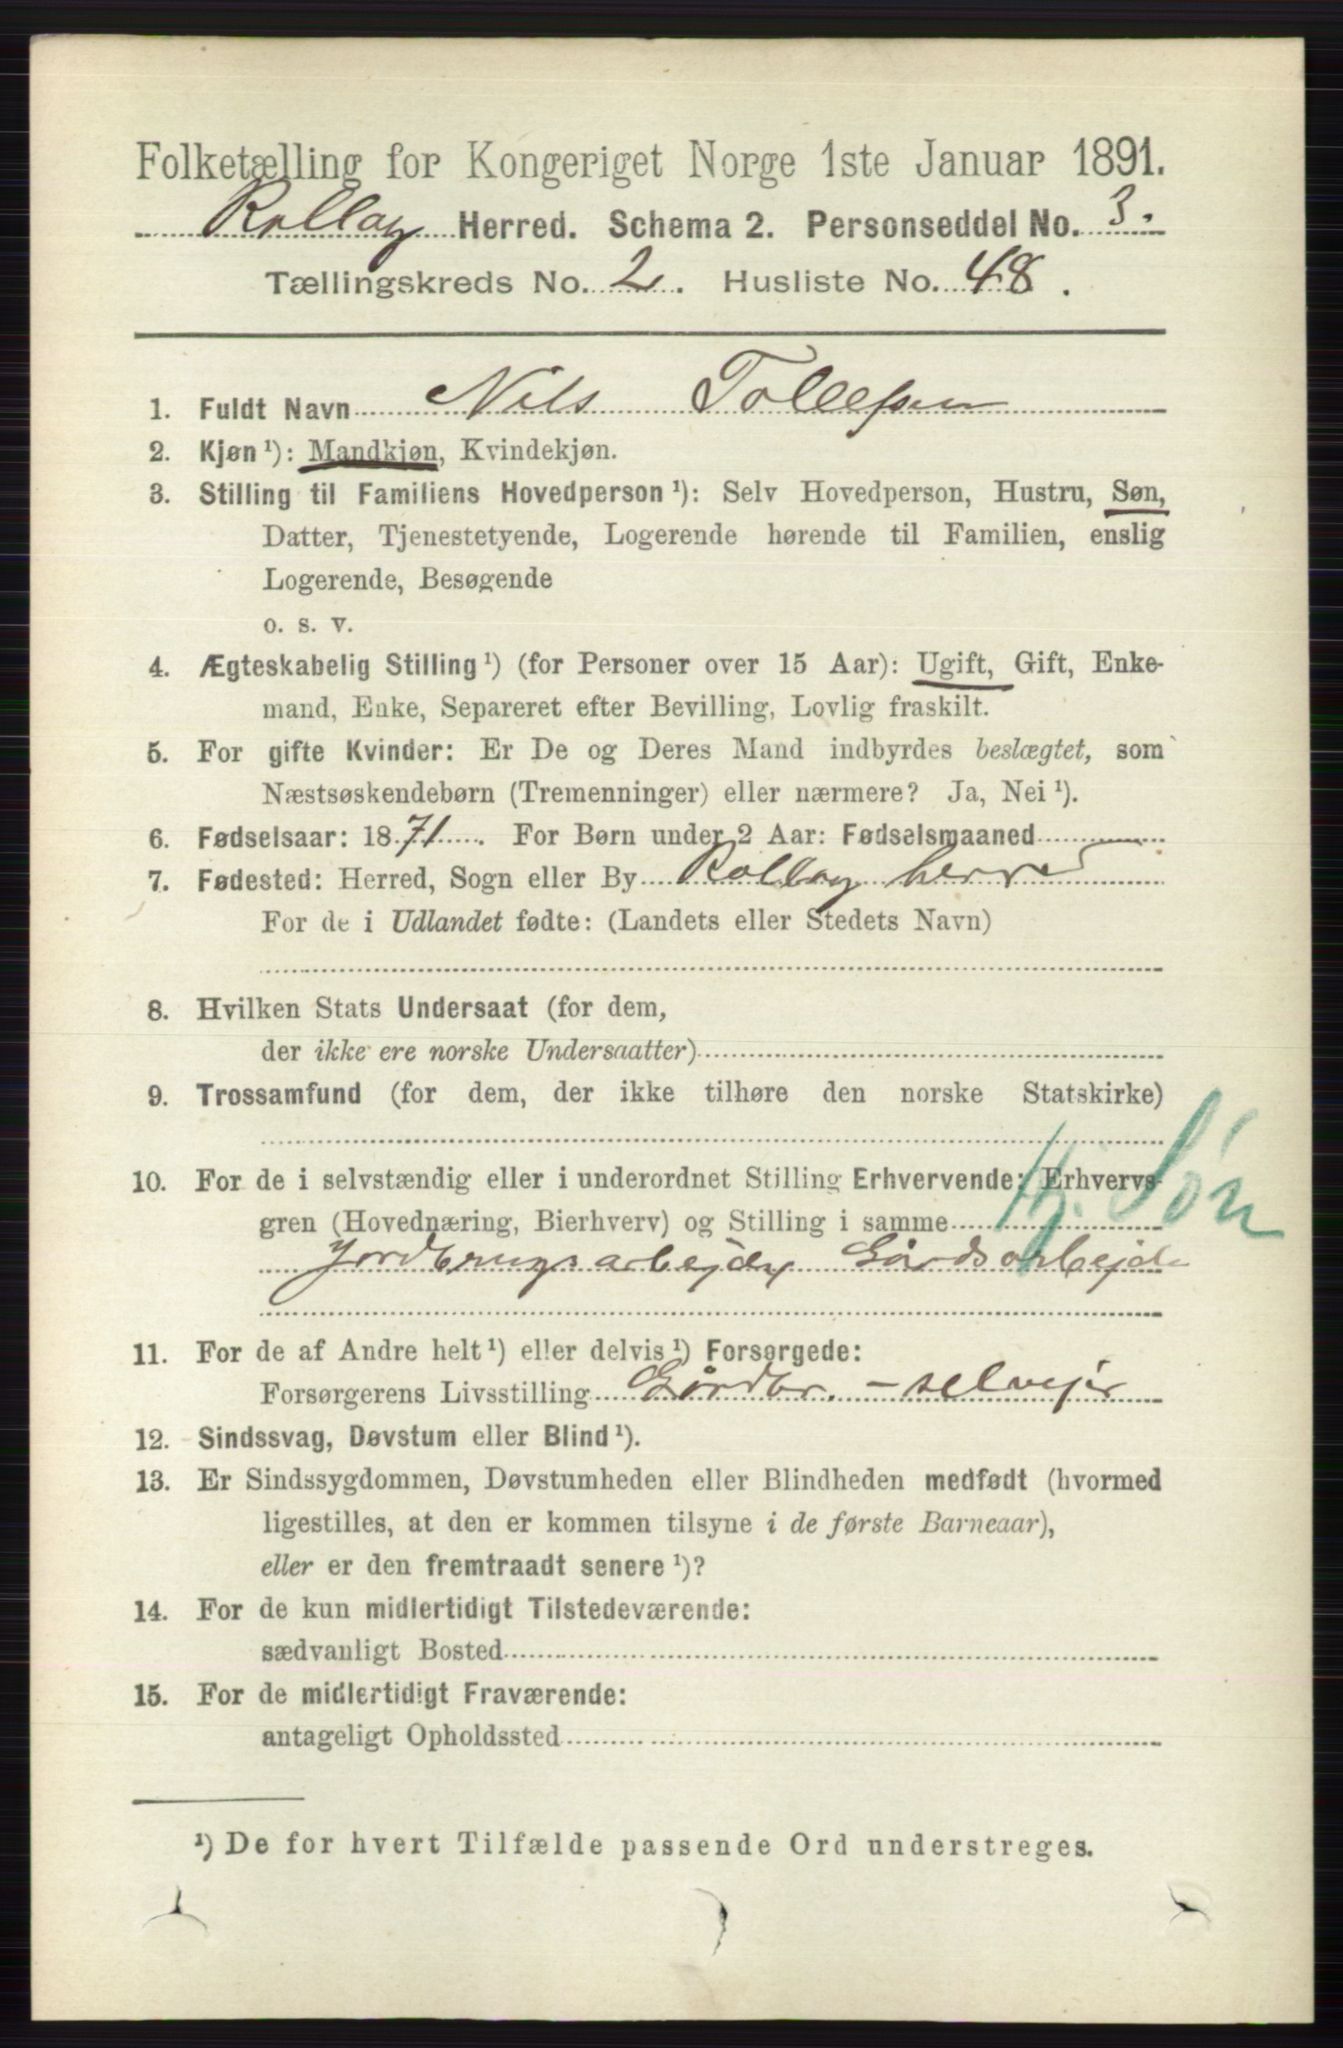 Folketælling for Kongeriget Norge 1ste Januar 1891.
Rollag Herred. Schema 2. Personseddel No. 3.
Tællingskreds No. 2. Husliste No. 48.
1. Fuldt Navn Nils Tollefsen
2. Kjøn¹): Mandkjøn, Kvindekjøn.
3. Stilling til Familiens Hovedperson¹): Selv Hovedperson, Hustru, Søn,
Datter, Tjenestetyende, Logerende hørende til Familien, enslig
Logerende, Besøgende
o. s. v.
4. Ægteskabelig Stilling¹) (for Personer over 15 Aar): Ugift, Gift, Enke-
mand, Enke, Separeret efter Bevilling, Lovlig fraskilt.
5. For gifte Kvinder: Er De og Deres Mand indbyrdes beslægtet, som
Næstsøskendebørn (Tremenninger) eller nærmere? Ja, Nei¹).
6. Fødselsaar: 1871. For Børn under 2 Aar: Fødselsmaaned
7. Fødested: Herred, Sogn eller By Rollag herred
For de i Udlandet fødte: (Landets eller Stedets Navn)
8. Hvilken Stats Undersaat (for dem,
der ikke ere norske Undersaatter)
9. Trossamfund (for dem, der ikke tilhøre den norske Statskirke)
10. For de i selvstændig eller i underordnet Stilling Erhvervende: Erhvervs-
gren (Hovednæring, Bierhverv) og Stilling i samme Hj. Søn
Jordbrugsarbejde Gårdsarbejde
11. For de af Andre helt¹) eller delvis¹) Forsørgede:
Forsørgerens Livsstilling Gårdbr. - selvejer
12. Sindssvag, Døvstum eller Blind¹).
13. Er Sindssygdommen, Døvstumheden eller Blindheden medfødt (hvormed
ligestilles, at den er kommen tilsyne i de første Barneaar),
eller er den fremtraadt senere¹)?
14. For de kun midlertidigt Tilstedeværende:
sædvanligt Bosted
15. For de midlertidigt Fraværende:
antageligt Opholdssted
¹) De for hvert Tilfælde passende Ord understreges.